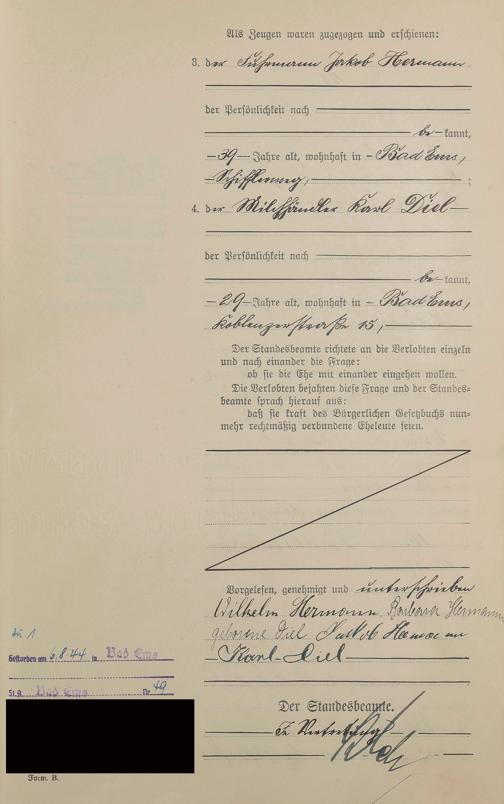 Als Zeugen waren zugezogen und erschienen:
3. der Fuhrmann Jakob Hermann
der Persönlichkeit nach
be kannt,
39 Jahre alt, wohnhaft in Bad Ems,
;
4. der Milchhändler Karl Diel
der Persönlichkeit nach
be kannt,
29 Jahre alt, wohnhaft in Bad Ems,
Koblenzerstraße 15,
Der Standesbeamte richtete an die Verlobten einzeln
und nach einander die Frage:
ob sie die Ehe mit einander eingehen wollen.
Die Verlobten bejahten diese Frage und der Standes-
beamte sprach hierauf aus:
daß sie kraft des Bürgerlichen Gesetzbuchs nun-
mehr rechtmäßig verbundene Eheleute seien.
Vorgelesen, genehmigt und unterschrieben
Wilhelm Hermann Barbara Hermann
geborene Diel Jakob Hermann
Karl Diel
Der Standesbeamte.
In Vertretung
zu 1
Gestorben am 6.8.44 in Bad Ems
St.A. Bad Ems Nr. 49
Form. B.